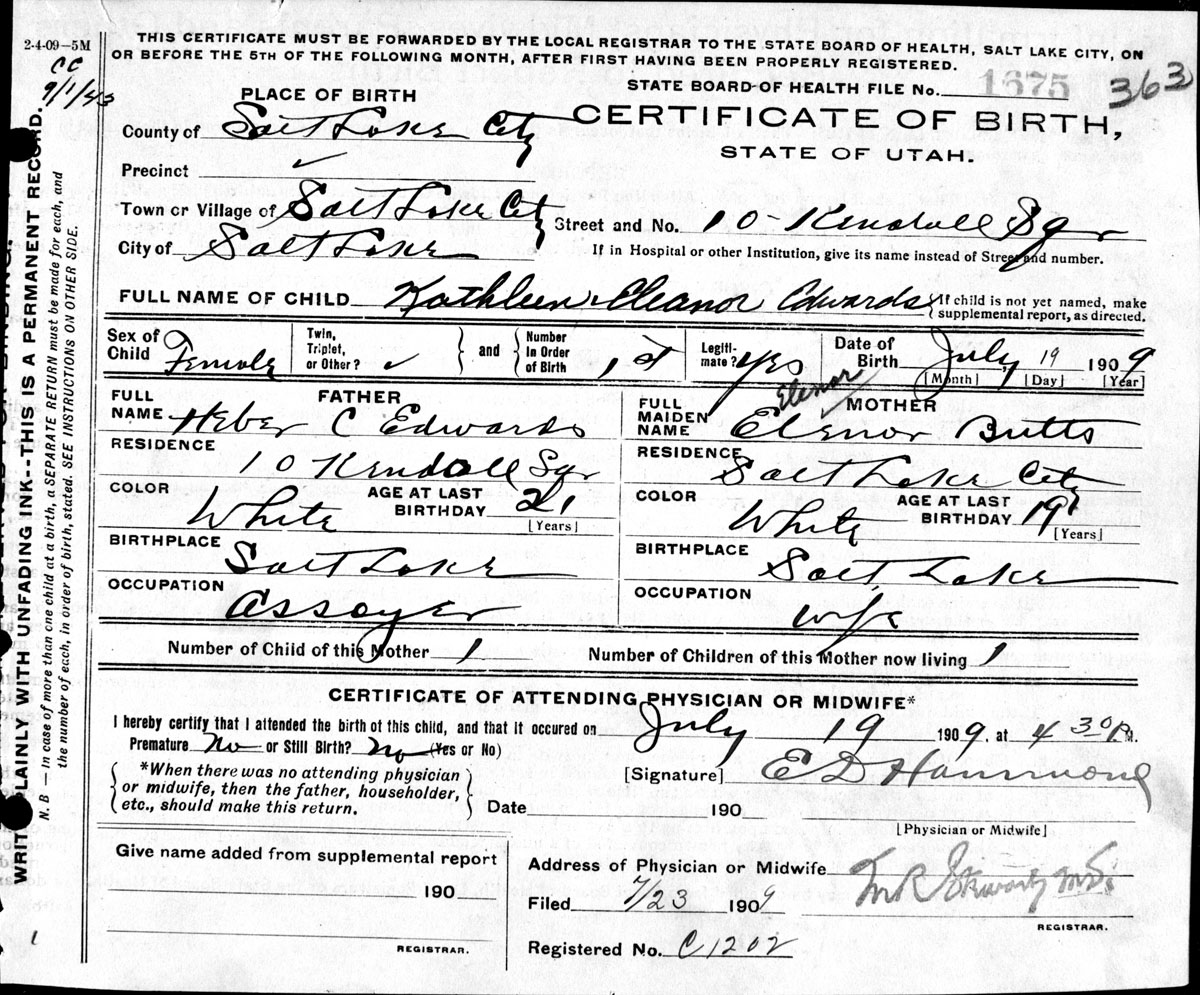 2-4-09—5M
CC
9/1/43
THIS CERTIFICATE MUST BE FORWARDED BY THE LOCAL REGISTRAR TO THE STATE BOARD OF HEALTH, SALT LAKE CITY, ON
OR BEFORE THE 5TH OF THE FOLLOWING MONTH, AFTER FIRST HAVING BEEN PROPERLY REGISTERED.
STATE BOARD OF HEALTH FILE No. 1675 363
PLACE OF BIRTH
CERTIFICATE OF BIRTH,
STATE OF UTAH.
County of Salt Lake City
Precinct ✓
Town or Village of Salt Lake City
Street and No. 10 Kendall Sqr
City of Salt Lake
If in Hospital or other Institution, give its name instead of Street and number.
FULL NAME OF CHILD Kathleen Eleanor Edwards { If child is not yet named, make
supplemental report, as directed.
Sex of Child Female
Twin, Triplet, or Other? ✓ } and { Number In Order of Birth 1st
Legiti-mate? Yes
Date of Birth July, 19 1909
[Month] [Day] [Year]
FATHER
FULL NAME Heber C Edwards
RESIDENCE
10 Kendall Sqr
COLOR White AGE AT LAST BIRTHDAY 21
[Years]
BIRTHPLACE
Salt Lake
OCCUPATION
Assayer
Elenor
MOTHER
FULL MAIDEN NAME Elenor Butts
RESIDENCE
Salt Lake City
COLOR White AGE AT LAST BIRTHDAY 19
[Years]
BIRTHPLACE
Salt Lake
OCCUPATION
Wife
Number of Child of this Mother 1 Number of Children of this Mother now living 1
CERTIFICATE OF ATTENDING PHYSICIAN OR MIDWIFE*
I hereby certify that I attended the birth of this child, and that it occured on July 19 1909. at 4 30 P.M.
Premature No or Still Birth? No (Yes or No)
{ *When there was no attending physician
or midwife, then the father, householder,
etc., should make this return. }
[Signature] E D Hammond
Date 190
[Physician or Midwife]
Give name added from supplemental report
190
REGISTRAR.
Address of Physician or Midwife
Filed 7/23 1909
M.D.
REGISTRAR.
Registered No. C1202
WRITE PLAINLY WITH UNFADING INK--THIS IS A PERMANENT RECORD.
N. B — In case of more than one child at a birth, a SEPARATE RETURN must be made for each, and
the number of each, in order of birth, stated. SEE INSTRUCTIONS ON OTHER SIDE.